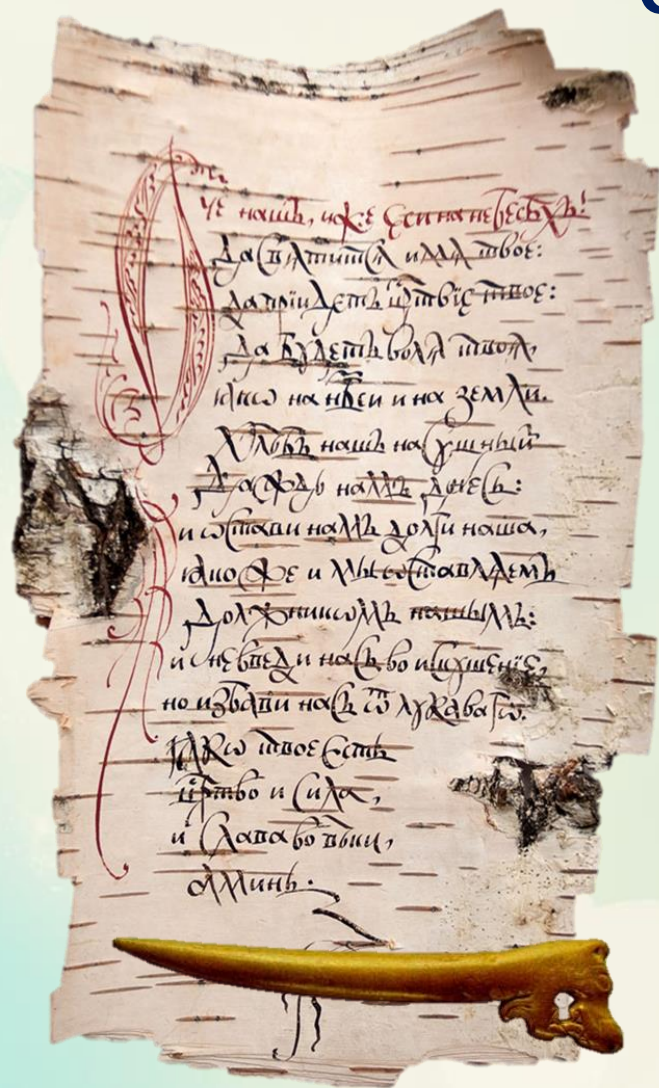 Отче нашъ, иже еси на небесѣхъ!
Да свѧтитсѧ имѧ твое:
да прїидетъ цр҃твїе твое:
да будетъ волѧ твоѧ,
ꙗкѡ на нб҃си и на земли.
Хлѣбъ нашъ насущный
даждь намъ днесь:
и ѡстави намъ долги наша,
ꙗкоже и мы ѡставлѧемъ
должникѡмъ нашымъ:
и не введи насъ во искушенїе,
но избави насъ ѿ лукавагѡ.
ꙗкѡ твое есть
цр҃тво и сила,
и слава во вѣки,
аминь.